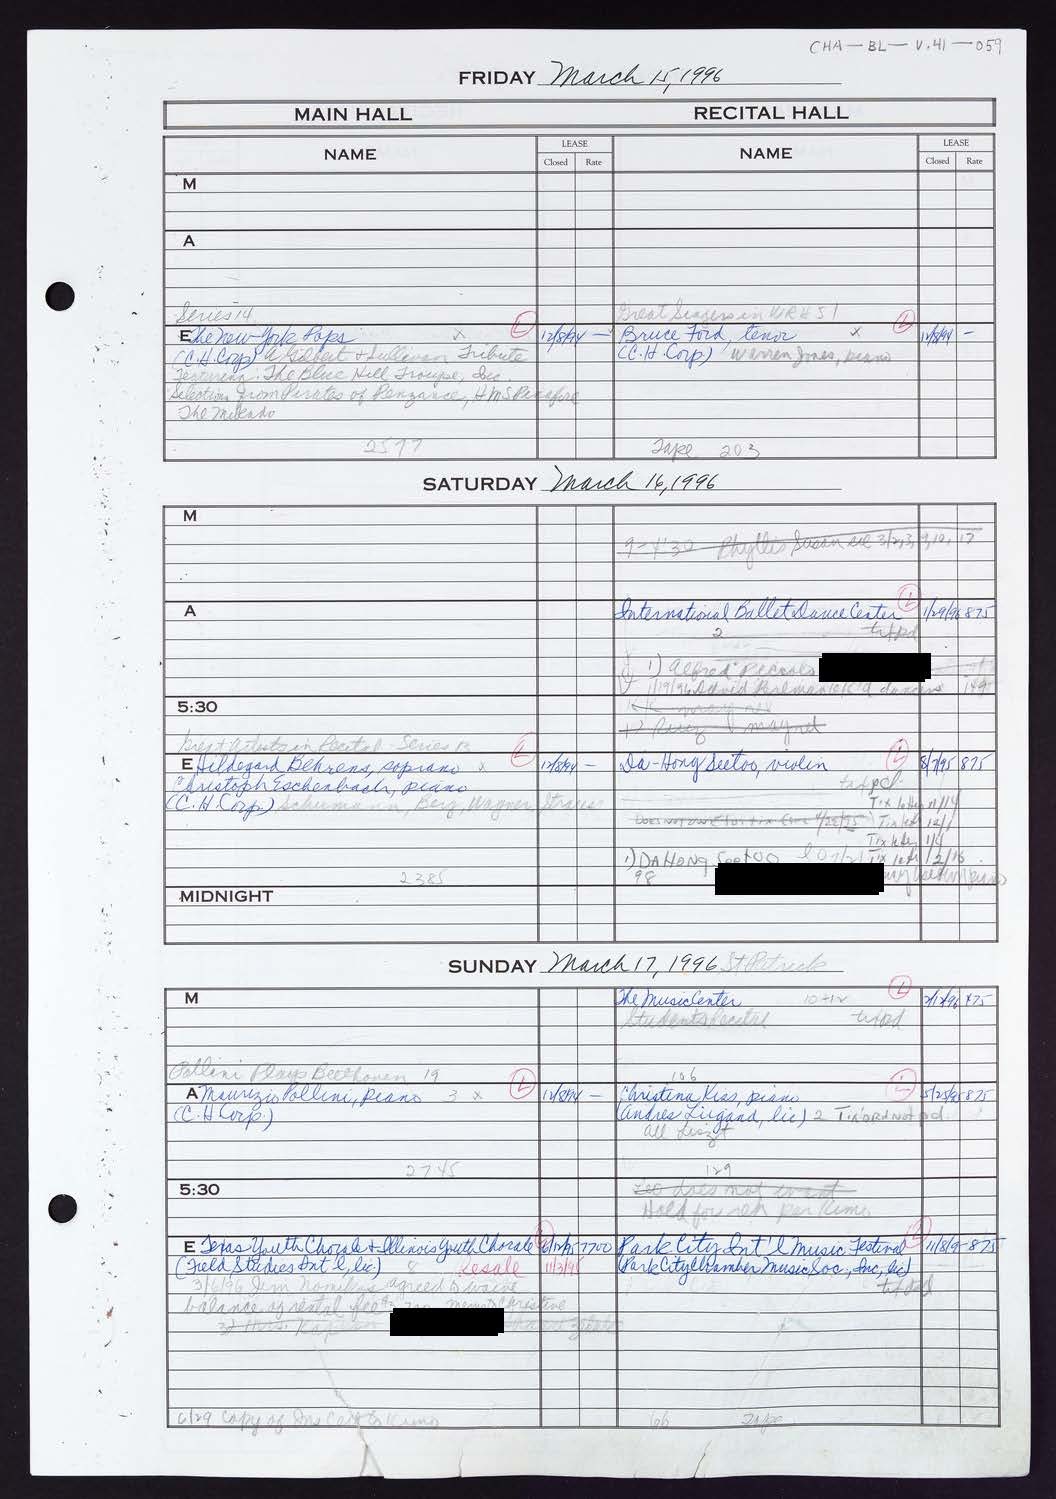 CHA-BL-V.41-059
FRIDAY March 15, 1996
MAIN HALL RECITAL HALL
NAME LEASE Closed Rate NAME LEASE Closed Rate
M
A
Series 14
E The New York Pops x L 12/8/94 —
(C.H. Corp) A Gilbert & Sullivan Tribute
Featuring: The Blue Hill Troupe, Inc
Selections from Pirates of Penzance, HMS Pinafore
The Mikado
2577
Great Singers in WRH 51
Bruce Ford, tenor x L 12/8/94 —
(C.H. Corp) Warren Jones, piano
Tape 203
SATURDAY March 16, 1996
M
9-4:30 Phyllis Susan see 3/2,3,9,10,17
A
International Ballet Dance Center L 1/29/96 875
2 tixpd
1) Alfred
1/19/96 David dancers
5:30
Great Artists in Recital - Series 13
E Hildegard Behrens, soprano x L 12/8/94 —
Christoph Eschenbach, piano
(C.H. Corp.) Schumann, Berg, Wagner, Strauss
2385
Da-Hong Seetoo, violin L 8/7/95 875
tixpd
Tix letter 11/14
Tix letr 12/1
Tix letter 1/4
1) DA HONG Seetoo Tix letr 2/16
98
MIDNIGHT
SUNDAY March 17, 1996 St Patrick
M
The Music Center 10-12 L 2/12/96 475
Students Recital tixpd
106
Pollini Plays Beethoven 19
A Maurizio Pollini, piano 3 x L 12/8/94 —
(C.H. Corp.)
2745
Christina Kiss, piano L 5/25/95 875
(Andres lic) 2 Tix ORD NOT pd.
All Liszt
129
5:30
does not want
Hold for reh per Kimo
E Texas Youth Chorale & Illinois Youth Chorale L 6/12/95 7700
(Field Studies Int'l, lic) 8 Resale 11/3/95
3/6/96 Jim agreed to waive
balance of rental fee memo Christine
6/29 Copy of Ins Cert to Kimo
Park City Int'l Music Festival L 11/8/9- 875
(Park City Chamber Music Soc., Inc, lic)
tixpd
166 Tape